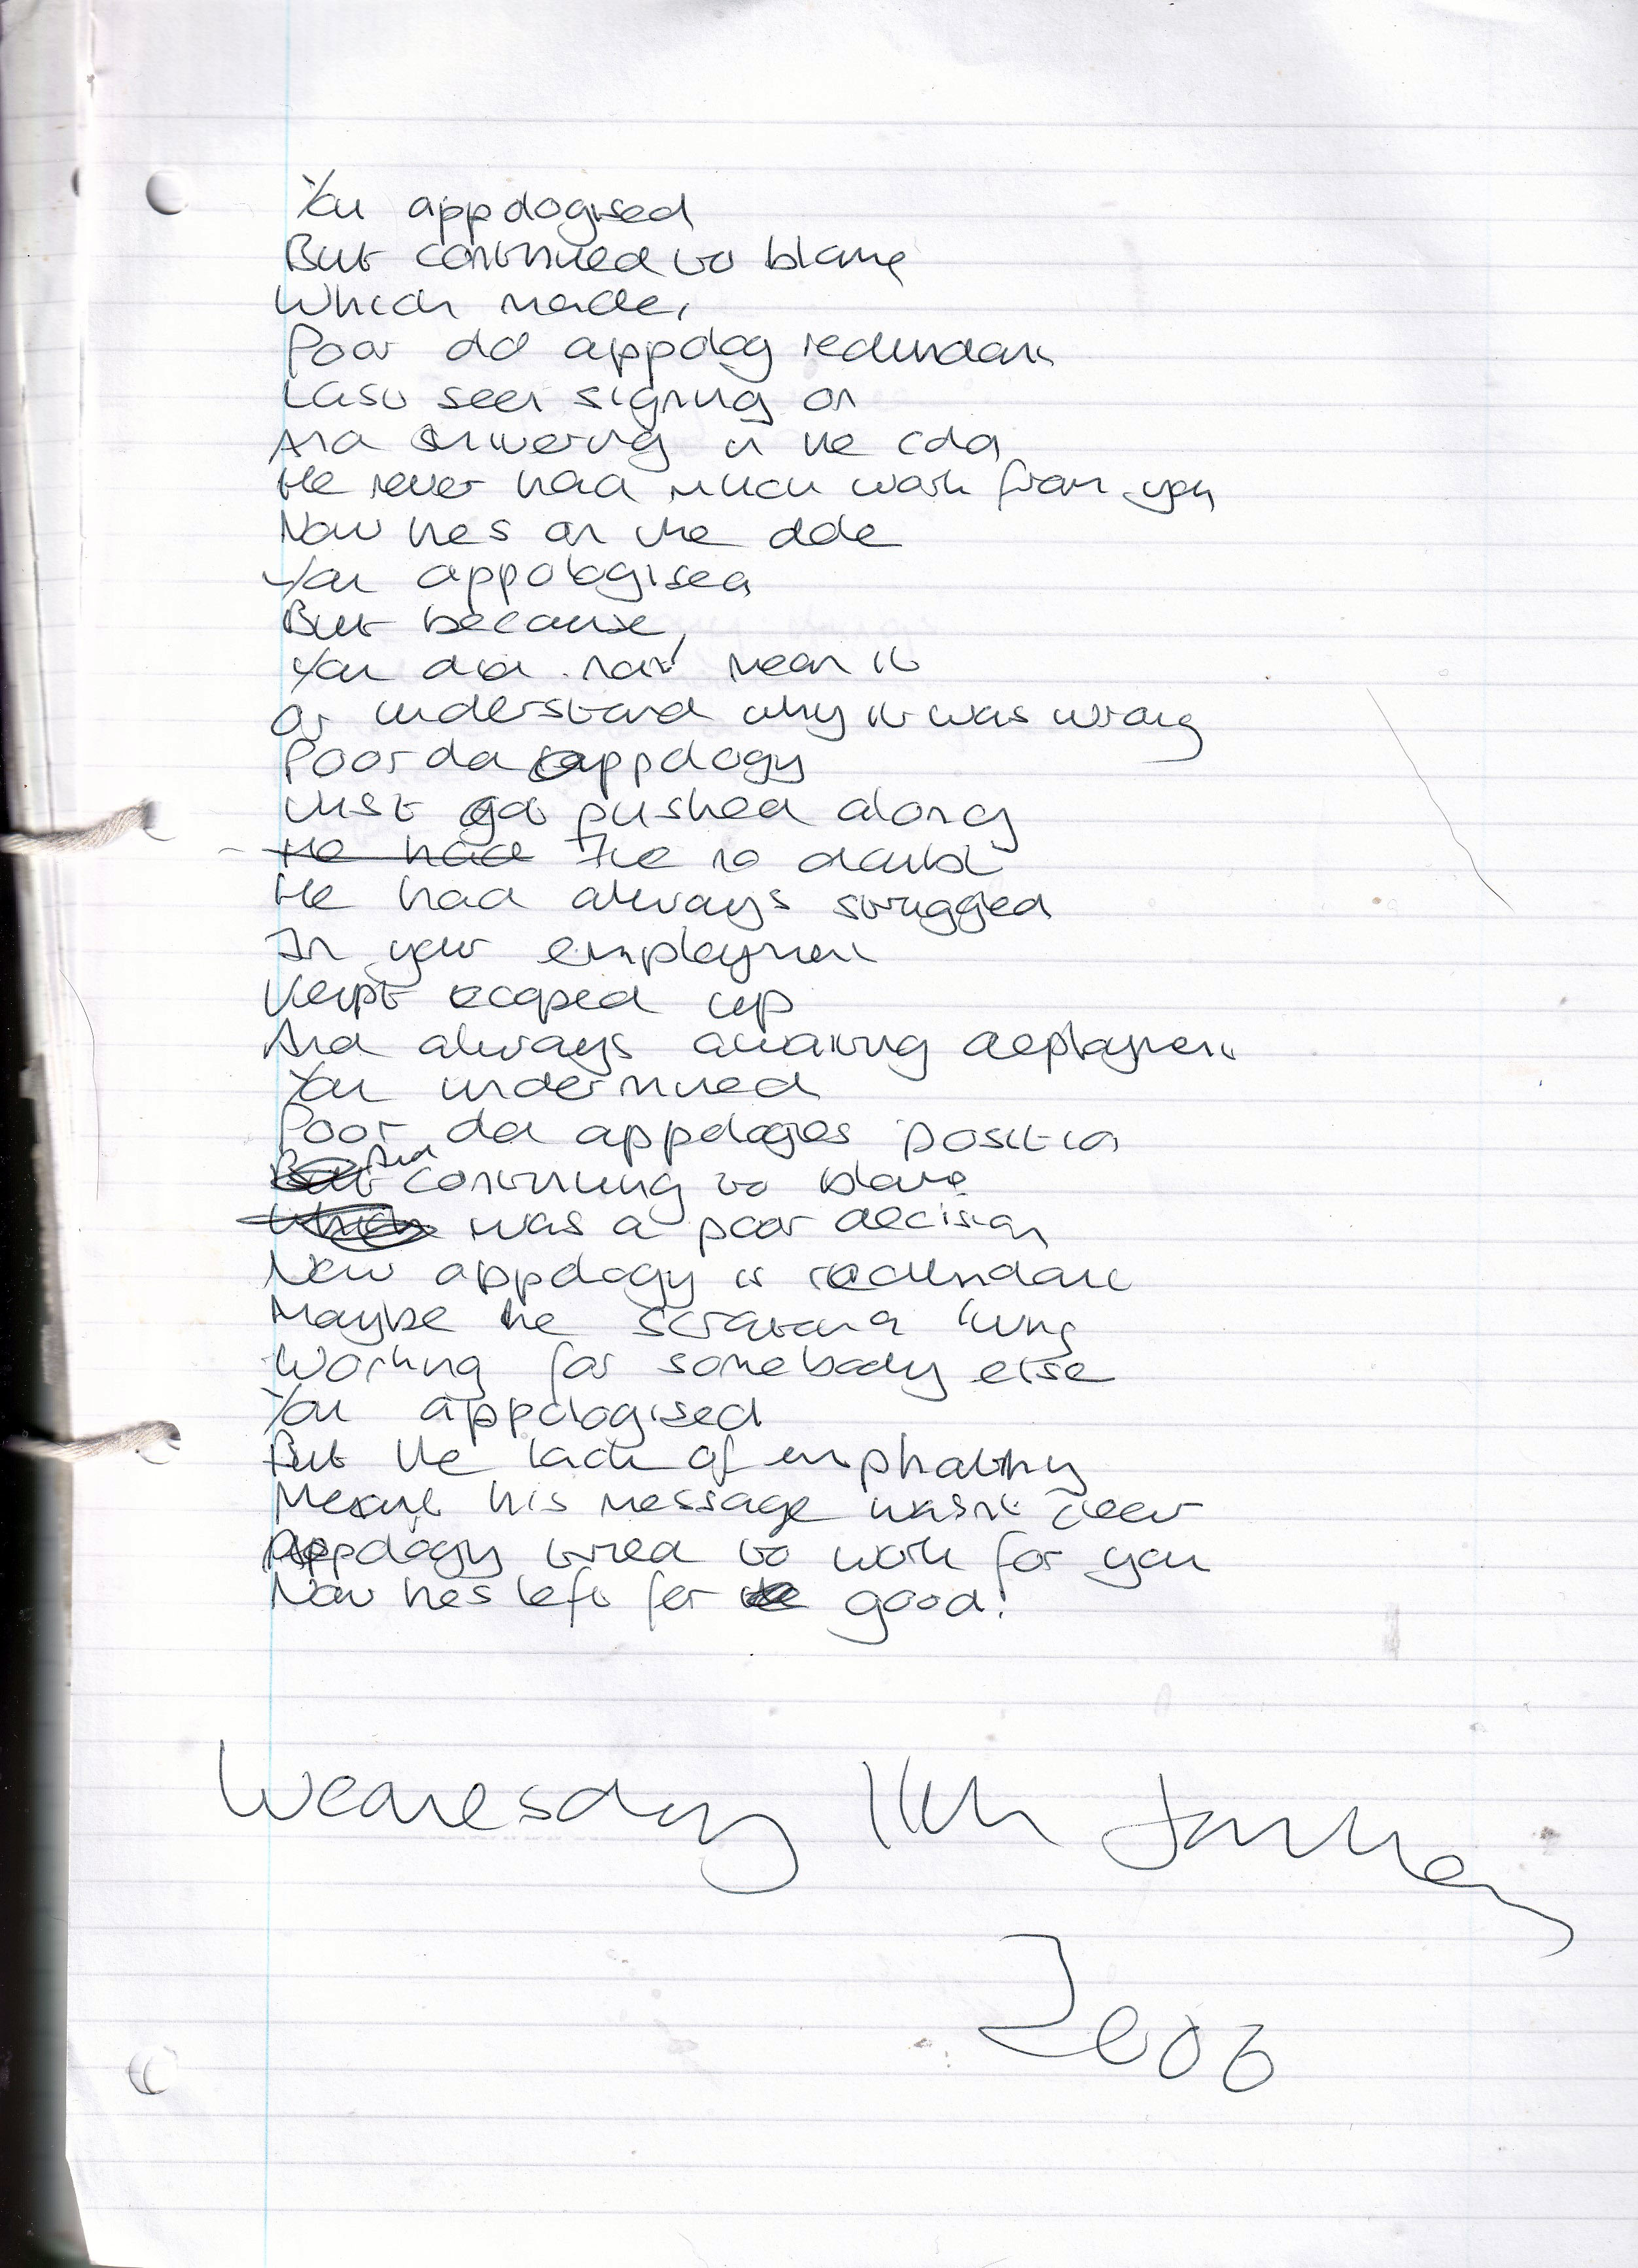 You appologised
But continued to blame
Which made,
Poor old appolog redundant
Last seen signing on
And shivering in the cold
He never had much work from you
Now hes on the dole
You appologised
But because,
You did not mean it
Or understand why it was wrong
Poor old appology
Just got pushed along
He had The no doubt
He had always struggled
In your employment
Kept cooped up
And always awaiting deployment
You undermined
Poor old appologies position
But And continuing to blame
Which was a poor decision
Now appology is redundant
Maybe he scratching a living
Working for somebody else
You appologised
But the lack of emphathy
Meant his message wasnt clear
Appology tried to work for you
Now hes left for good!
Wednesday 11th January
2006